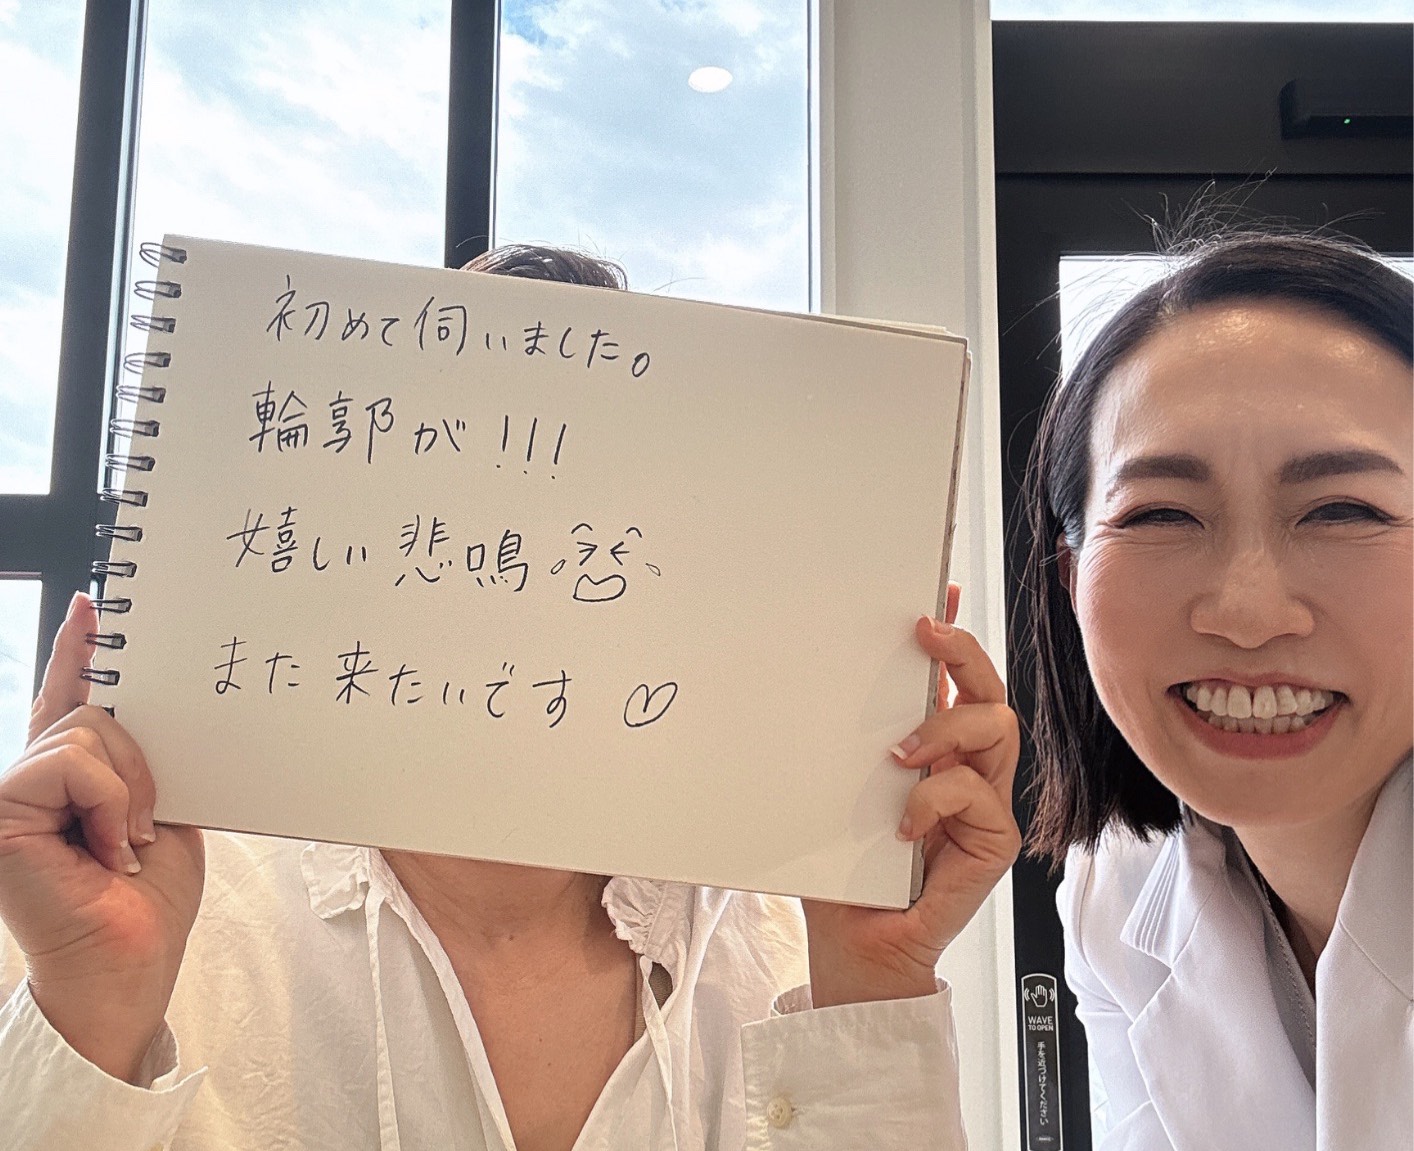 初めて伺いました。
輪郭が!!!
嬉しい悲鳴
また来たいです♡
WAVE
TO OPEN
手を近づけてください